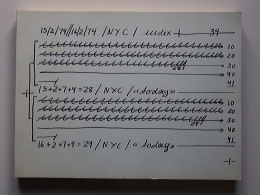 15/2/74//16/2/74 / NYC / index 34
10
20
28! 30
40
41
15+2+7+4=28 / NYC / «today»
10
20
29! 30
40
41
16+2+7+4=29 / NYC / «today»